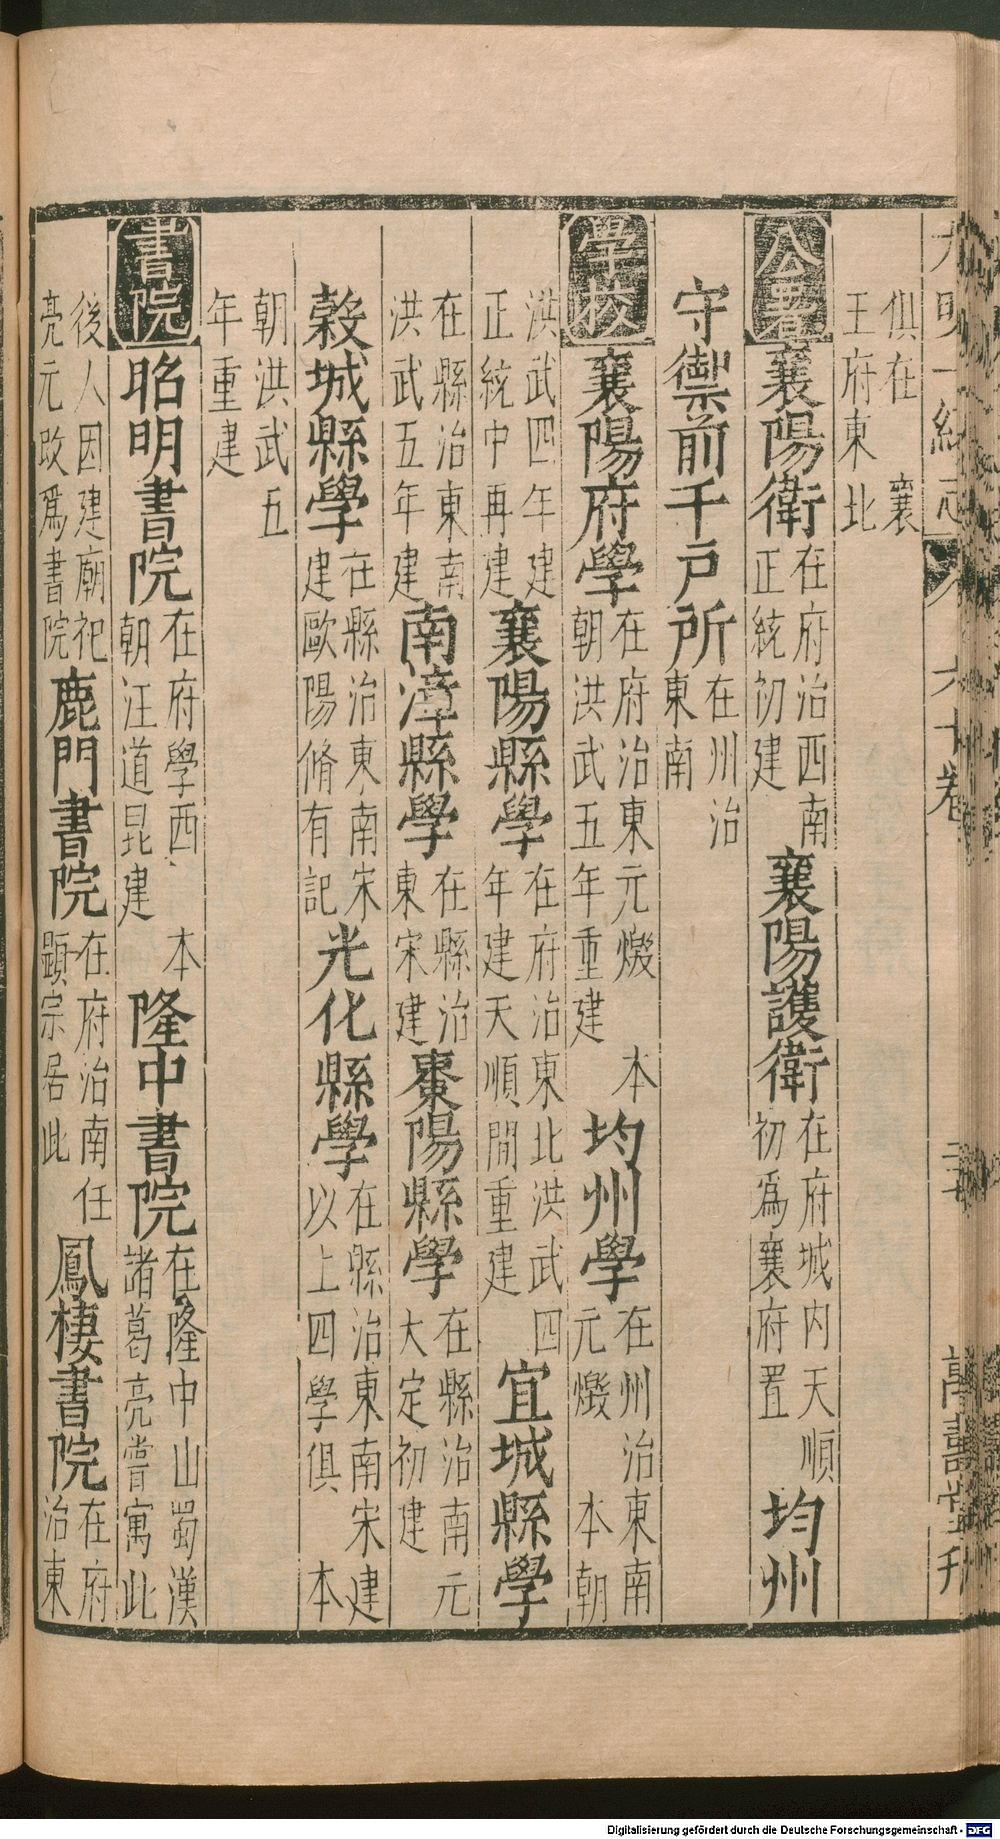 大明一統志 六十卷 二十 萬壽堂刊
俱在 襄王府東北
公署 襄陽衛 在府治西南正統初建 襄陽護衛 在府城内天順初爲襄府置 均州
守禦前千戶所 在州治東南
學校 襄陽府學 在府治東元燬 本朝洪武五年重建 均州學 在州治東南元燬 本朝
洪武四年建正統中再建 襄陽縣學 在府治東北洪武四年建天順間重建 宜城縣學
在縣治東南洪武五年建 南漳縣學 在縣治東宋建 棗陽縣學 在縣治南元大定初建
穀城縣學 在縣治東南宋建歐陽脩有記 光化縣學 在縣治東南宋建以上四學俱 本
朝洪武五年重建
書院 昭明書院 在府學西 本朝汪道昆建 隆中書院 在隆中山蜀漢諸葛亮嘗寓此
後人因建廟祀亮元改爲書院 鹿門書院 在府治南任顕宗居此 鳳棲書院 在府治東
Digitalisierung gefördert durch die Deutsche Forschungsgemeinschaft - DFG